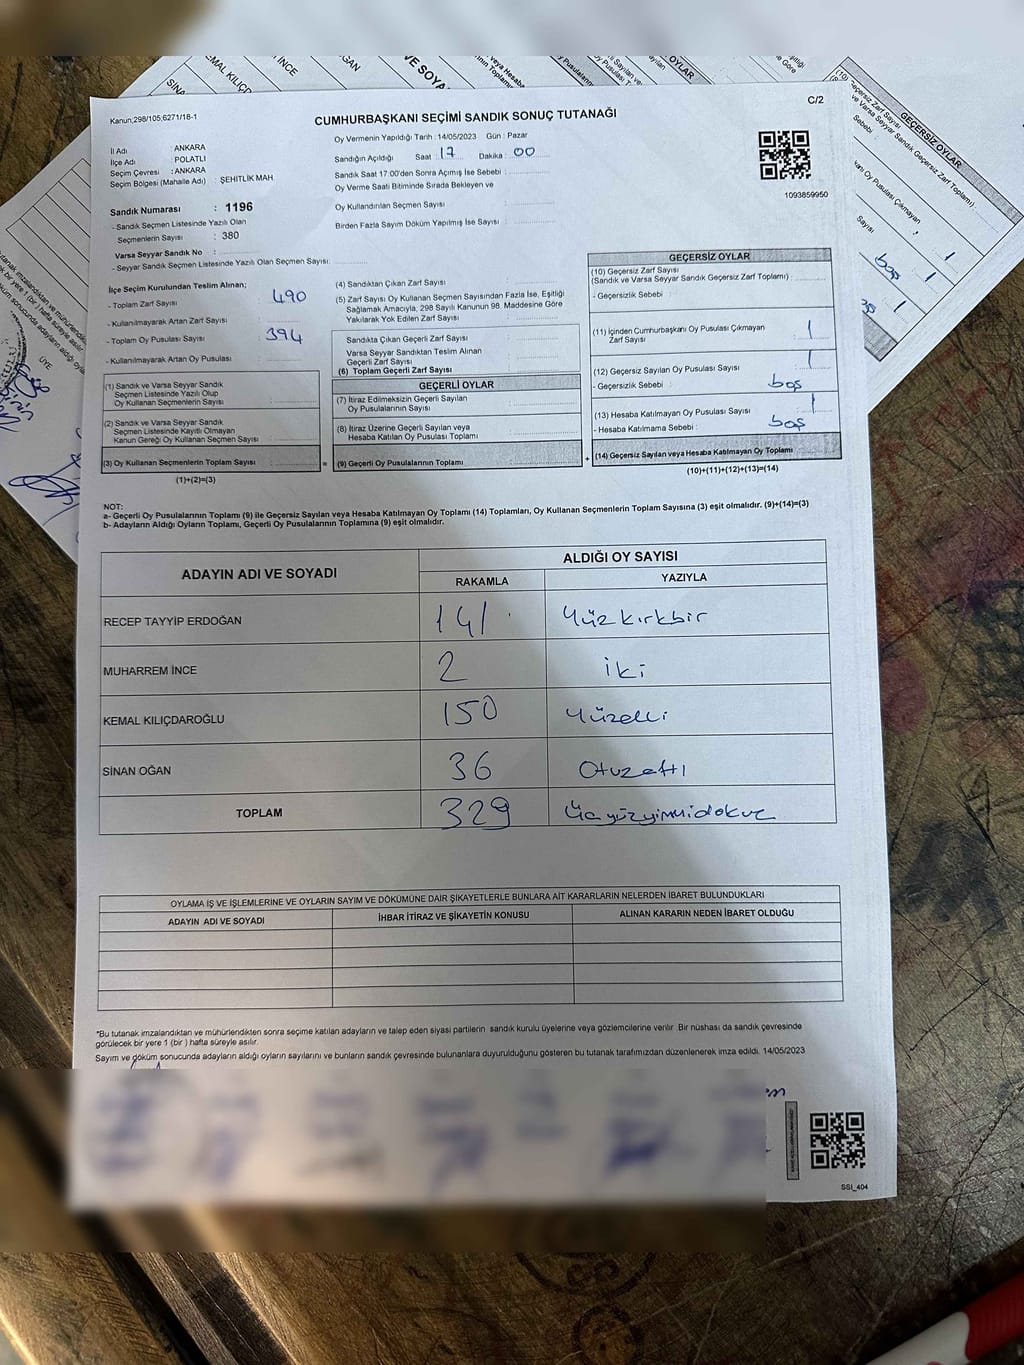 Kanun;298/105,6271/18-1
C/2
CUMHURBAŞKANI SEÇİMİ SANDIK SONUÇ TUTANAĞI
İl Adı : ANKARA
İlçe Adı : POLATLI
Seçim Çevresi : ANKARA
Seçim Bölgesi (Mahalle Adı) : ŞEHİTLİK MAH.
Oy Vermenin Yapıldığı Tarih : 14/05/2023 Gün : Pazar
Sandığın Açıldığı Saat : 17 Dakika : 00
Sandık Saat 17:00'den Sonra Açımış İse Sebebi :
Oy Verme Saati Bitiminde Sırada Bekleyen ve
Oy Kullandırılan Seçmen Sayısı :
Birden Fazla Sayım Döküm Yapılmış İse Sayısı :
1093859950
Sandık Numarası : 1196
- Sandık Seçmen Listesinde Yazılı Olan
Seçmenlerin Sayısı : 380
Varsa Seyyar Sandık No :
- Seyyar Sandık Seçmen Listesinde Yazılı Olan Seçmen Sayısı:
İlçe Seçim Kurulundan Teslim Alınan;
- Toplam Zarf Sayısı : 490
- Kullanılmayarak Artan Zarf Sayısı :
- Toplam Oy Pusulası Sayısı : 394
- Kullanılmayarak Artan Oy Pusulası :
(1) Sandık ve Varsa Seyyar Sandık
Seçmen Listesinde Yazılı Olup
Oy Kullanan Seçmenlerin Sayısı :
(2) Sandık ve Varsa Seyyar Sandık
Seçmen Listesinde Kayıtlı Olmayan
Kanun Gereği Oy Kullanan Seçmen Sayısı :
(3) Oy Kullanan Seçmenlerin Toplam Sayısı :
(1)+(2)=(3)
(4) Sandıktan Çıkan Zarf Sayısı :
(5) Zarf Sayısı Oy Kullanan Seçmen Sayısından Fazla İse, Eşitliği
Sağlamak Amacıyla, 298 Sayılı Kanunun 98. Maddesine Göre
Yakılarak Yok Edilen Zarf Sayısı :
Sandıkta Çıkan Geçerli Zarf Sayısı :
Varsa Seyyar Sandıktan Teslim Alınan
Geçerli Zarf Sayısı :
(6) Toplam Geçerli Zarf Sayısı :
GEÇERLİ OYLAR
(7) İtiraz Edilmeksizin Geçerli Sayılan
Oy Pusulalarının Sayısı :
(8) İtiraz Üzerine Geçerli Sayılan veya
Hesaba Katılan Oy Pusulası Toplamı :
= (9) Geçerli Oy Pusulalarının Toplamı :
GEÇERSİZ OYLAR
(10) Geçersiz Zarf Sayısı
(Sandık ve Varsa Seyyar Sandık Geçersiz Zarf Toplamı) :
- Geçersizlik Sebebi :
(11) İçinden Cumhurbaşkanı Oy Pusulası Çıkmayan
Zarf Sayısı : 1
(12) Geçersiz Sayılan Oy Pusulası Sayısı : 1
- Geçersizlik Sebebi : boş
(13) Hesaba Katılmayan Oy Pusulası Sayısı : 1
- Hesaba Katılmama Sebebi : boş
+ (14) Geçersiz Sayılan veya Hesaba Katılmayan Oy Toplamı :
(10)+(11)+(12)+(13)=(14)
NOT:
a- Geçerli Oy Pusulalarının Toplamı (9) ile Geçersiz Sayılan veya Hesaba Katılmayan Oy Toplamı (14) Toplamları, Oy Kullanan Seçmenlerin Toplam Sayısına (3) eşit olmalıdır. (9)+(14)=(3)
b- Adayların Aldığı Oyların Toplamı, Geçerli Oy Pusulalarının Toplamına (9) eşit olmalıdır.
ADAYIN ADI VE SOYADI
ALDIĞI OY SAYISI
RAKAMLA YAZIYLA
RECEP TAYYİP ERDOĞAN 141 Yüzkırkbir
MUHARREM İNCE 2 iki
KEMAL KILIÇDAROĞLU 150 Yüzelli
SİNAN OĞAN 36 Otuzaltı
TOPLAM 329 üçyüzyirmidokuz
OYLAMA İŞ VE İŞLEMLERİNE VE OYLARIN SAYIM VE DÖKÜMÜNE DAİR ŞİKAYETLERLE BUNLARA AİT KARARLARIN NELERDEN İBARET BULUNDUKLARI
ADAYIN ADI VE SOYADI İHBAR İTİRAZ VE ŞİKAYETİN KONUSU ALINAN KARARIN NEDEN İBARET OLDUĞU
*Bu tutanak imzalandıktan ve mühürlendikten sonra seçime katılan adayların ve talep eden siyasi partilerin sandık kurulu üyelerine veya gözlemcilerine verilir Bir nüshası da sandık çevresinde
görülecek bir yere 1 (bir ) hafta süreyle asılır.
Sayım ve döküm sonucunda adayların aldığı oyların sayılarını ve bunların sandık çevresinde bulunanlara duyurulduğunu gösteren bu tutanak tarafımızdan düzenlenerek imza edildi. 14/05/2023
SSI_404